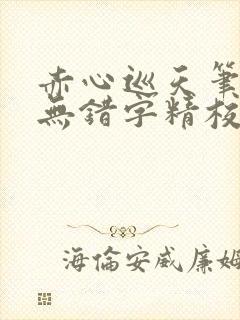 赤心巡天筆
無錯字精校
海倫安威廉姆